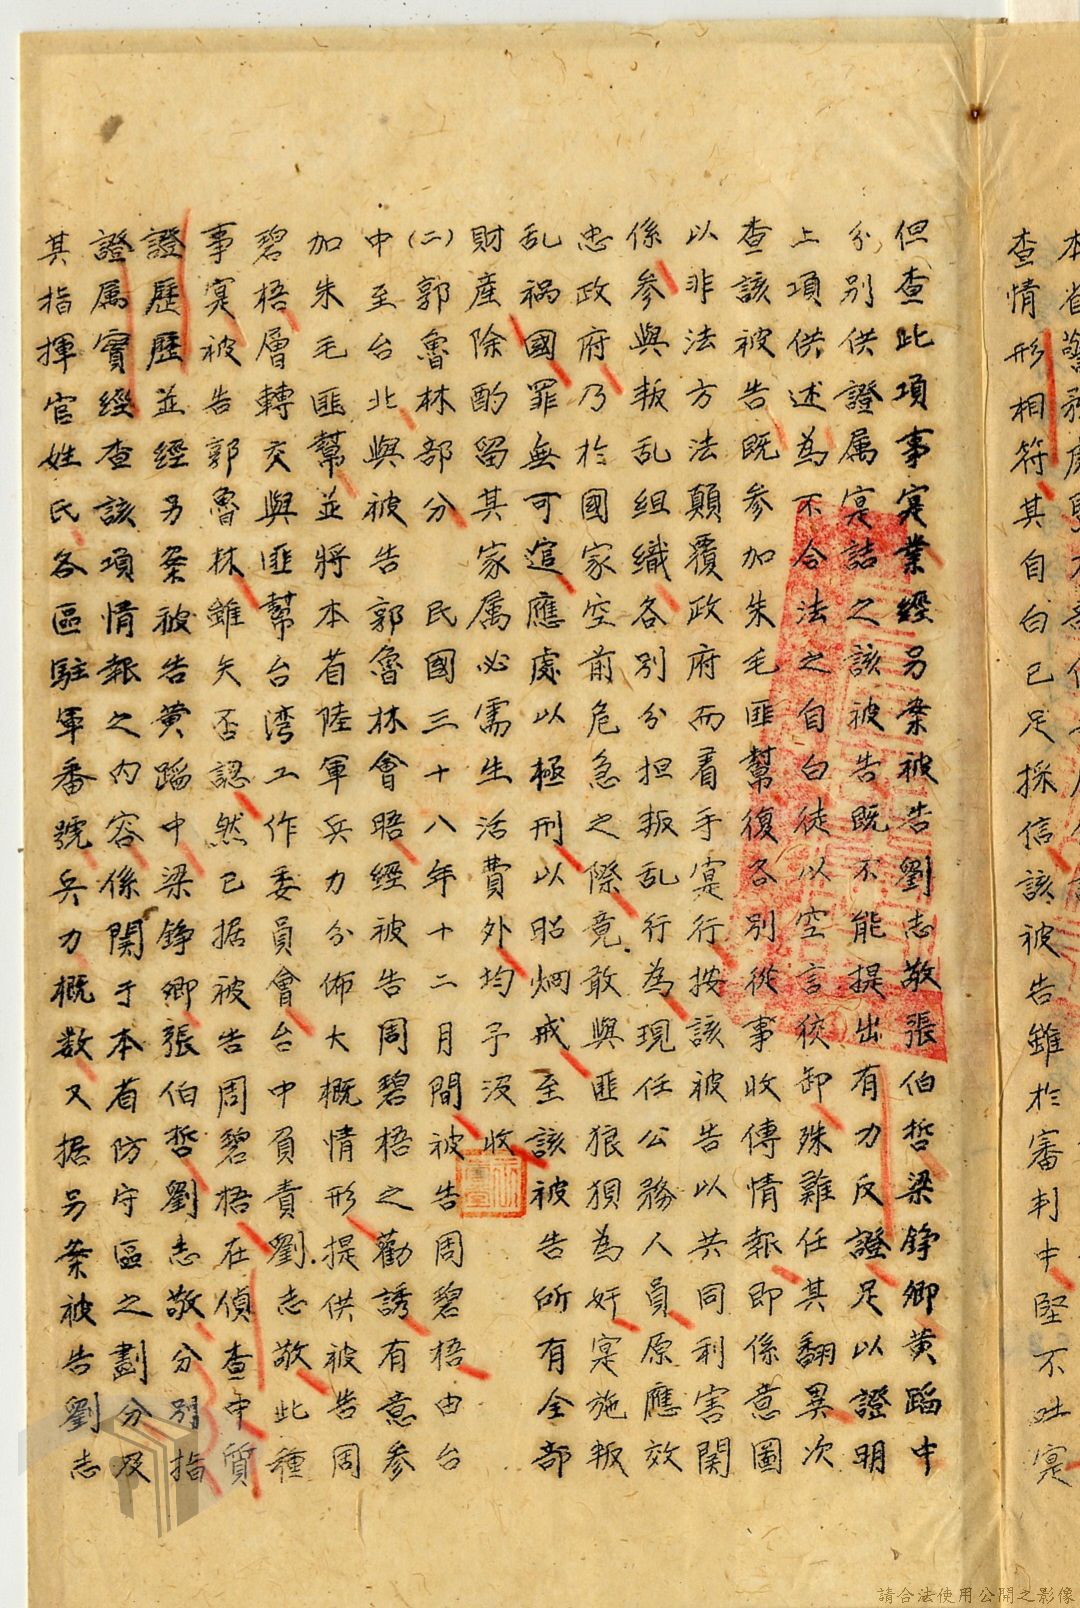 查情形相符其自白已足採信該被告雖於審判中堅不吐寔
但查此項事寔業經另案被告劉志敬張伯哲梁錚卿黃蹈中
分別供證属寔詰之該被告既不能提出有力反證足以證明
上項供述為不合法之自白徒以空言狡卸殊難任其翻異次
查該被告既参加朱毛匪幫復各別從事收傳情報即係意圖
以非法方法顛覆政府而着手寔行按該被告以共同利害関
係参與叛乱組織各別分担叛乱行為現任公務人員原應效
忠政府乃於國家空前危急之際竟敢與匪狼狽為奸寔施叛
乱禍國罪無可逭應處以極刑以昭炯戒至該被告所有全部
財產除酌留其家属必需生活費外均予没收
(二)郭魯林部分 民國三十八年十二月間被告周碧梧由台
中至台北與被告郭魯林會晤經被告周碧梧之勸誘有意参
加朱毛匪幫並將本省陸軍兵力分佈大概情形提供被告周
碧梧層轉交與匪幫台湾工作委員會台中負責劉志敬此種
事寔被告郭魯林雖矢否認然已据被告周碧梧在偵查中質
證歷歷並經另案被告黃蹈中梁錚卿張伯哲劉志敬分別指
證属實經查該項情報之内容係関于本省防守區之劃分及
其指揮官姓氏各區駐軍番號兵力概数又据另案被告劉志
請合法使用公開之影像